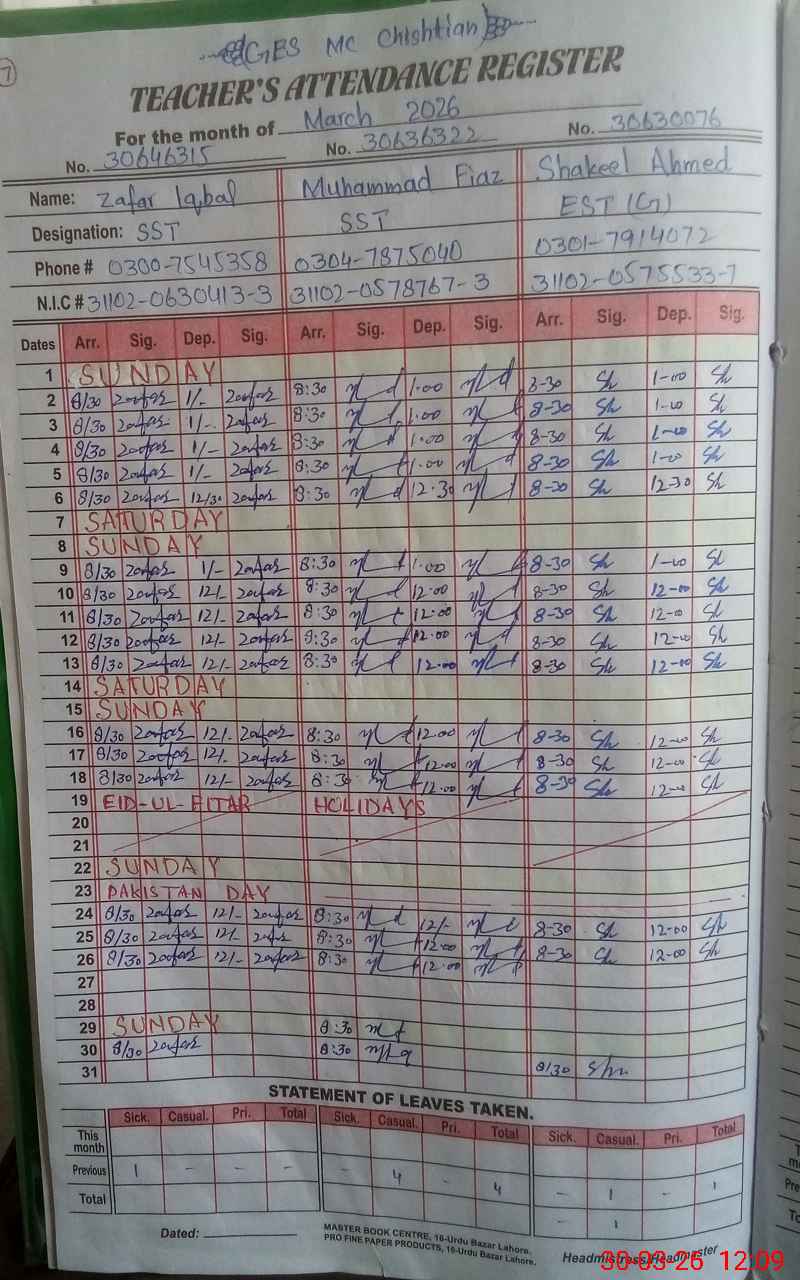 7
GES MC Chishtian
TEACHER'S ATTENDANCE REGISTER
For the month of March 2026
No. 30646315 No. 30636322 No. 30630076
Name: Zafar Iqbal Muhammad Fiaz Shakeel Ahmed
Designation: SST SST EST (G)
Phone # 0300-7545358 0304-7875040 0301-7914072
N.I.C # 31102-0630413-3 31102-0578767-3 31102-0575533-7
Dates Arr. Sig. Dep. Sig. Arr. Sig. Dep. Sig. Arr. Sig. Dep. Sig.
1 SUNDAY
2 8/30 Zaafar 1/- Zaafar 8:30 1.00 8-30 Sh 1-00 Sh
3 8/30 Zaafar 1/- Zaafar 8:30 1.00 8-30 Sh 1-00 Sh
4 8/30 Zaafar 1/- Zaafar 8:30 1.00 8-30 Sh 1-00 Sh
5 8/30 Zaafar 1/- Zaafar 8:30 1.00 8-30 Sh 1-00 Sh
6 8/30 Zaafar 12/30 Zaafar 8:30 12.30 8-30 Sh 12-30 Sh
7 SATURDAY
8 SUNDAY
9 8/30 Zaafar 1/- Zaafar 8:30 1.00 8-30 Sh 1-00 Sh
10 8/30 Zaafar 12/- Zaafar 8:30 12.00 8-30 Sh 12-00 Sh
11 8/30 Zaafar 12/- Zaafar 8:30 12.00 8-30 Sh 12-00 Sh
12 8/30 Zaafar 12/- Zaafar 8:30 12.00 8-30 Sh 12-00 Sh
13 8/30 Zaafar 12/- Zaafar 8:30 12.00 8-30 Sh 12-00 Sh
14 SATURDAY
15 SUNDAY
16 8/30 Zaafar 12/- Zaafar 8:30 12.00 8-30 Sh 12-00 Sh
17 8/30 Zaafar 12/- Zaafar 8:30 12.00 8-30 Sh 12-00 Sh
18 8/30 Zaafar 12/- Zaafar 8:30 12.00 8-30 Sh 12-00 Sh
19 EID-UL-FITAR HOLIDAYS
20
21
22 SUNDAY
23 PAKISTAN DAY
24 8/30 Zaafar 12/- Zaafar 8:30 12/- 8-30 Sh 12-00 Sh
25 8/30 Zaafar 12/- Zaafar 8:30 12.00 8-30 Sh 12-00 Sh
26 8/30 Zaafar 12/- Zaafar 8:30 12.00 8-30 Sh 12-00 Sh
27
28
29 SUNDAY 8:30
30 8/30 Zaafar 8:30
31 8/30
STATEMENT OF LEAVES TAKEN.
Sick. Casual. Pri. Total Sick. Casual. Pri. Total Sick. Casual. Pri. Total
This month
Previous 1 - - - - 4 - 4 - 1 - 1
Total - 1
Dated:
MASTER BOOK CENTRE, 16-Urdu Bazar Lahore.
PRO FINE PAPER PRODUCTS, 16-Urdu Bazar Lahore.
Headmistress/Headmaster
30-03-26 12:09